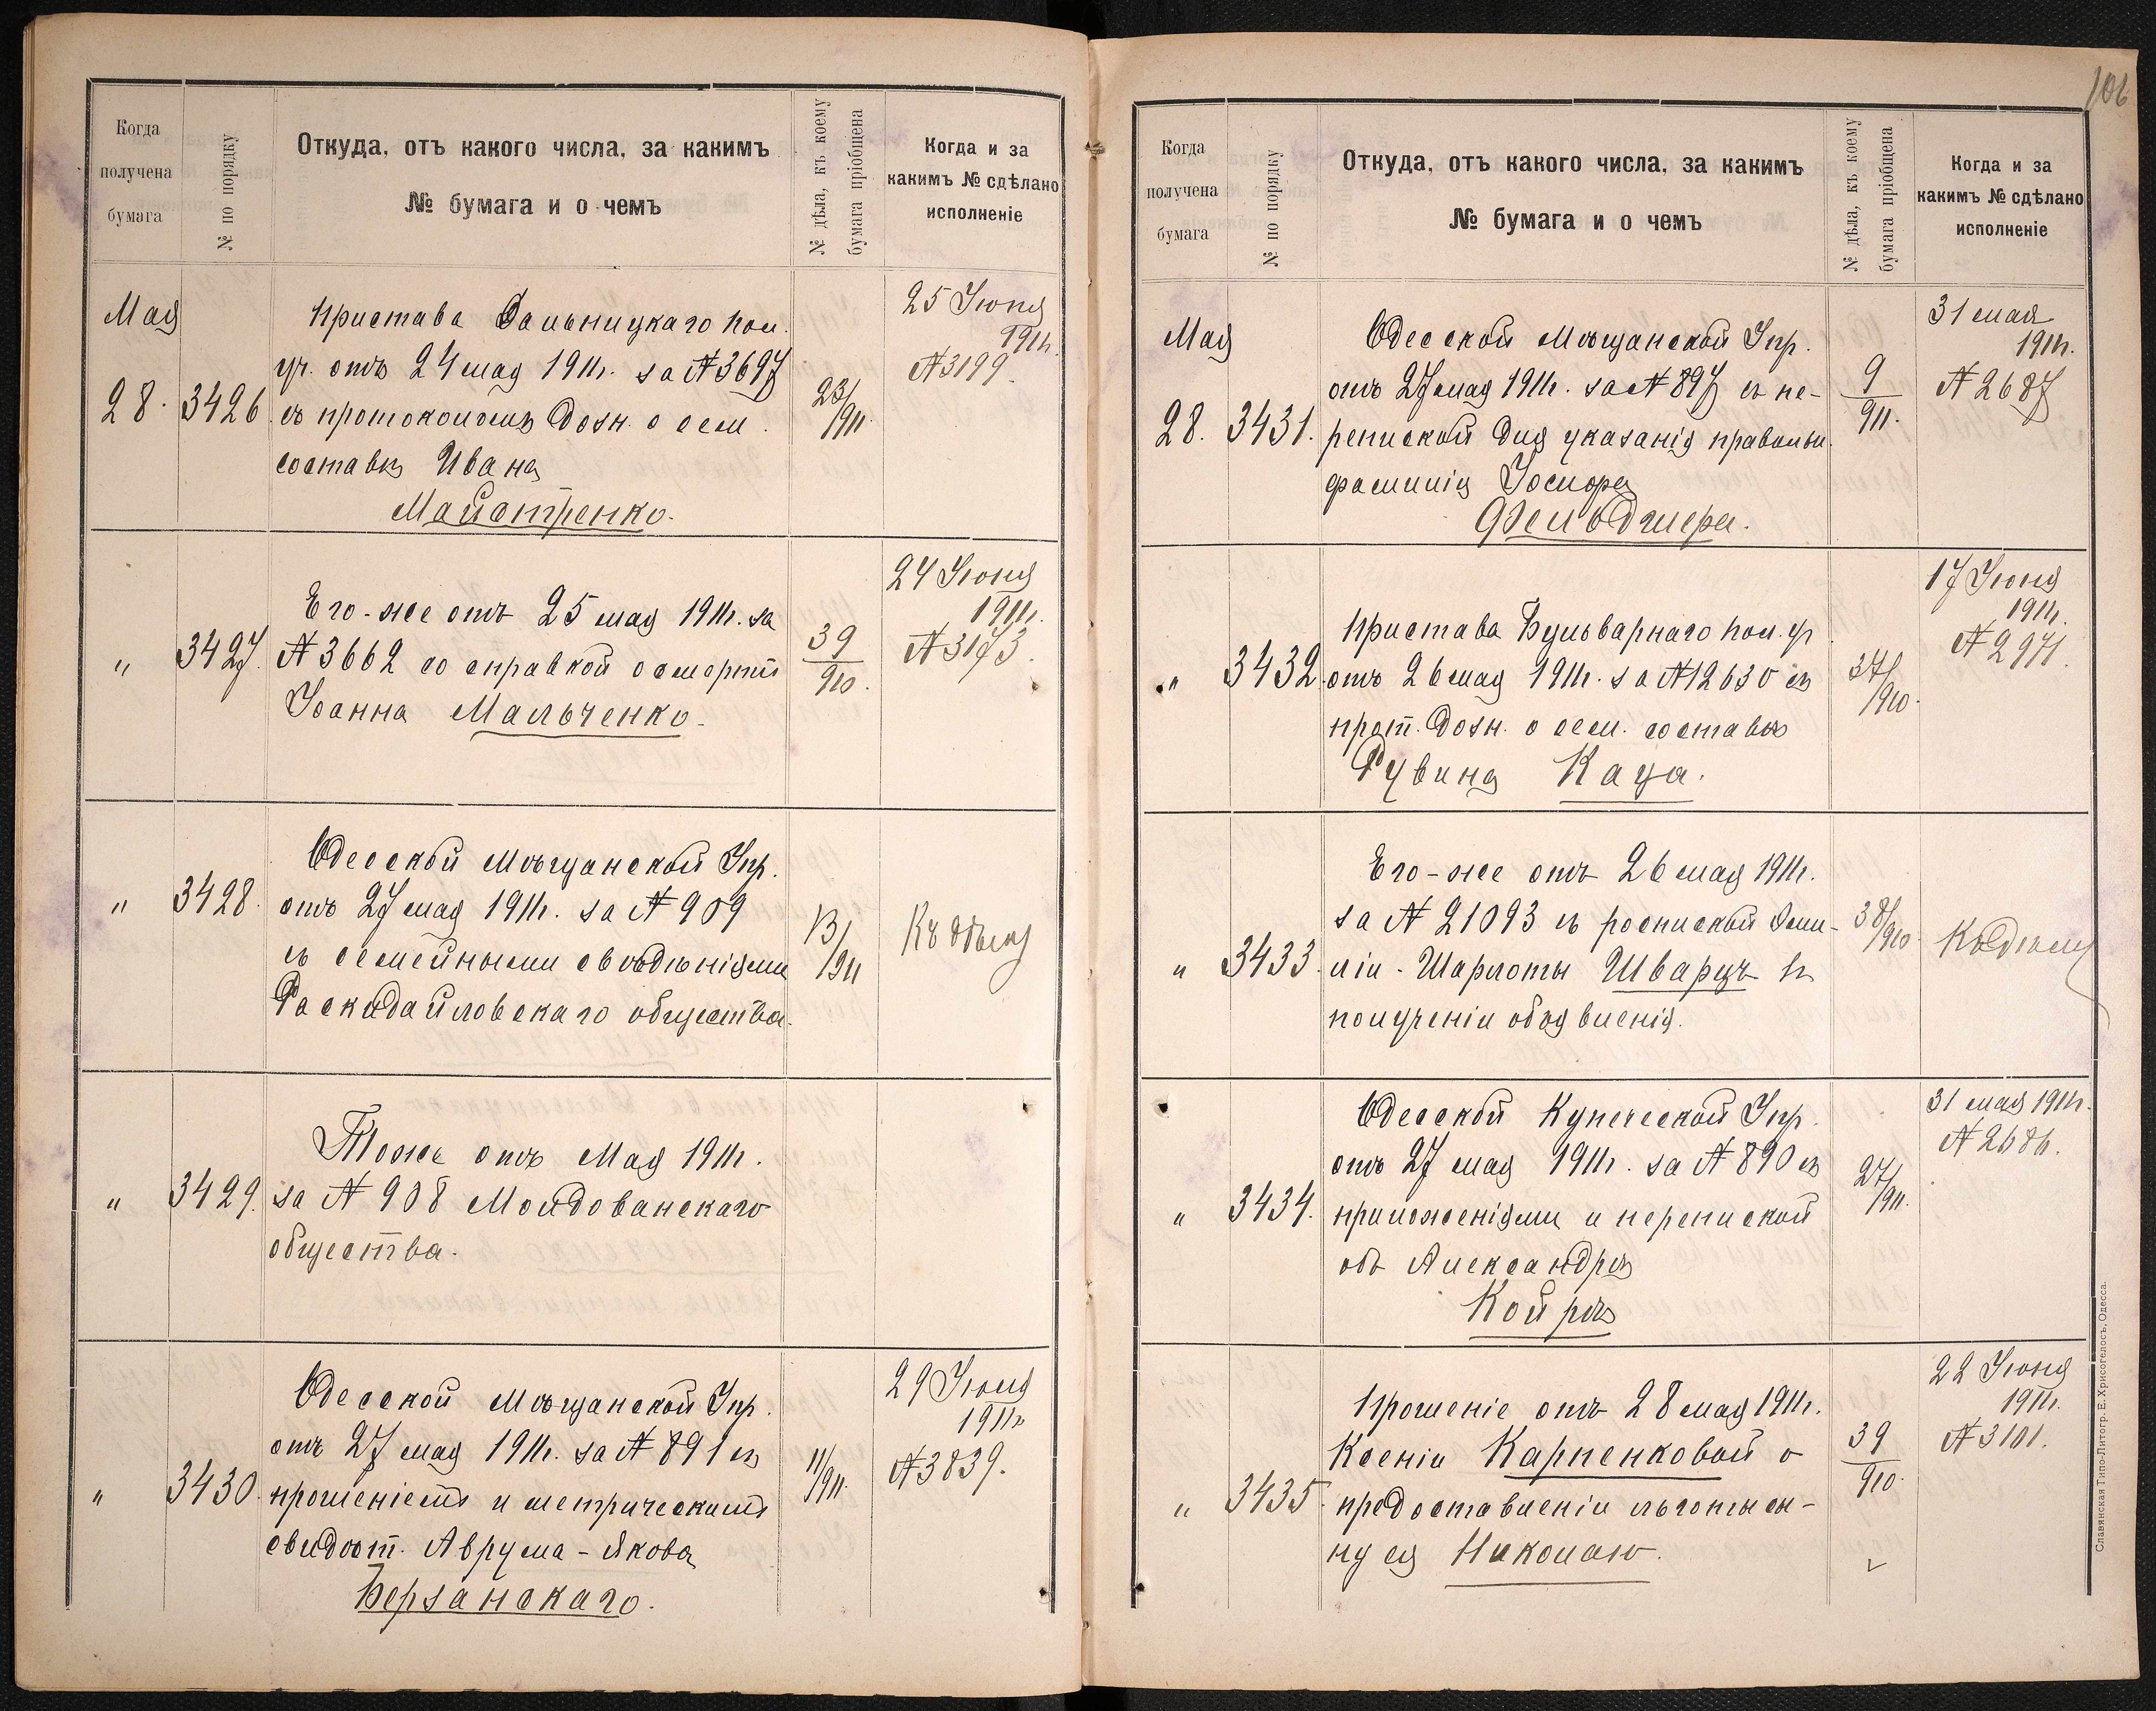 Когда
получена
бумага
№ по порядку
Откуда, отъ какого числа, за какимъ
№ бумага и о чемъ
№ дѣла, къ коему
бумага пріобщена
Когда и за
какимъ № сдѣлано
исполненіе
Мая
28.
3426.
Пристава Дальницкаго пол.
уч. отъ 24 мая 1911г. за № 3697
съ протоколомъ дозн. о сем.
составѣ Ивана
Майстренко.
23/911.
25 Іюня
1911г.
№ 3199.
"
3427.
Его-же отъ 25 мая 1911г. за
№ 3662 со справкой о смерти
Іоанна Мальченко.
39/910.
24 Іюня
1911г.
№ 3173.
"
3428.
Одесской Мѣщанской Упр.
отъ 27 мая 1911г. за № 909
съ семейными свѣдѣніями
Раскидайловскаго общества.
13/911
Къ дѣлу
"
3429.
Тоже отъ Мая 1911г.
за № 908 Молдованскаго
общества.
"
3430.
Одесской Мѣщанской Упр.
отъ 27 мая 1911г. за № 891 съ
прошеніемъ и метрическимъ
свидѣт. Аврума-Якова
Берзанскаго.
11/911.
29 Іюня
1911г.
№ 3839.
106
Когда
получена
бумага
№ по порядку
Откуда, отъ какого числа, за какимъ
№ бумага и о чемъ
№ дѣла, къ коему
бумага пріобщена
Когда и за
какимъ № сдѣлано
исполненіе
Мая
28.
3431.
Одесской Мѣщанской Упр.
отъ 27 мая 1911г. за № 897 съ пе-
репиской для указанія правильн.
фамиліи Іосифа
Фельдшера.
9/911.
31 мая
1911г.
№ 2687
"
3432.
Пристава Бульварнаго пол. уч.
отъ 26 мая 1911г. за № 12630 съ
прот. дозн. о сем. составѣ
Рувина Каца.
37/910.
17 Іюня
1911г.
№ 2971.
"
3433.
Его-же отъ 26 мая 1911г.
за № 21093 съ роспиской Эми-
ліи-Шарлоты Шварцъ въ
полученіи объявленія.
38/910.
Къ дѣлу
"
3434.
Одесской Купеческой Упр.
отъ 27 мая 1911г. за № 890 съ
приложеніями и перепиской
объ Александрѣ
Койрѣ
27/911.
31 мая 1911г.
№ 2686.
"
3435.
Прошеніе отъ 28 мая 1911г.
Ксеніи Карпенковой о
предоставленіи льготы сы-
ну ея Николаю.
39/910.
22 Іюня
1911г.
№ 3101.
Славянская Типо-Литогр. Е. Хрисогелосъ, Одесса.